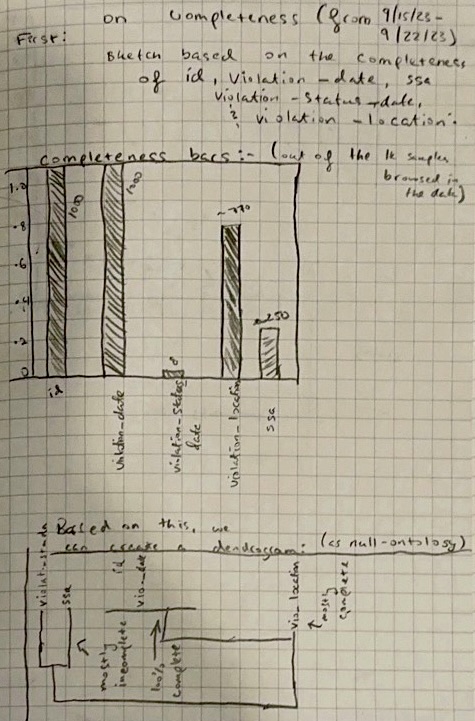 on completeness (from 9/15/23 -
9/22/23)
First:
sketch based on the completeness
of id, violation-date, ssa
violation-status-date,
& violation-location.
completeness bars:- (out of the 1k samples
browsed in
the data)
1.0
.8
.6
.4
.2
0
1000
1000
0
~770
~250
id
violation-date
violation-status
date
violation-location
ssa
Based on this, we
can create a dendrogram: (as null-ontology)
ssa
id
vio-date
vio-location
mostly
incomplete
100%
complete
mostly
complete